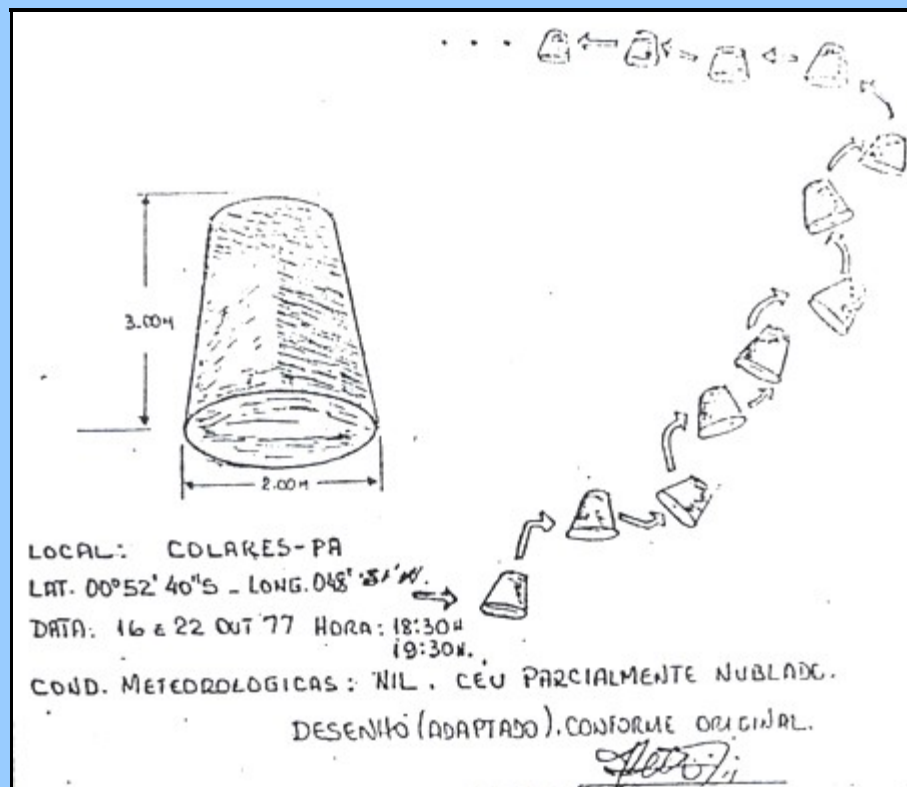 3.00M
2.00M
LOCAL: COLARES-PA
LAT. 00°52' 40"S - LONG. 048°
DATA: 16 E 22 OUT 77 HORA: 18:30H
19:30H.
COND. METEOROLOGICAS: NIL. CÉU PARCIALMENTE NUBLADO.
DESENHO (ADAPTADO). CONFORME ORIGINAL.